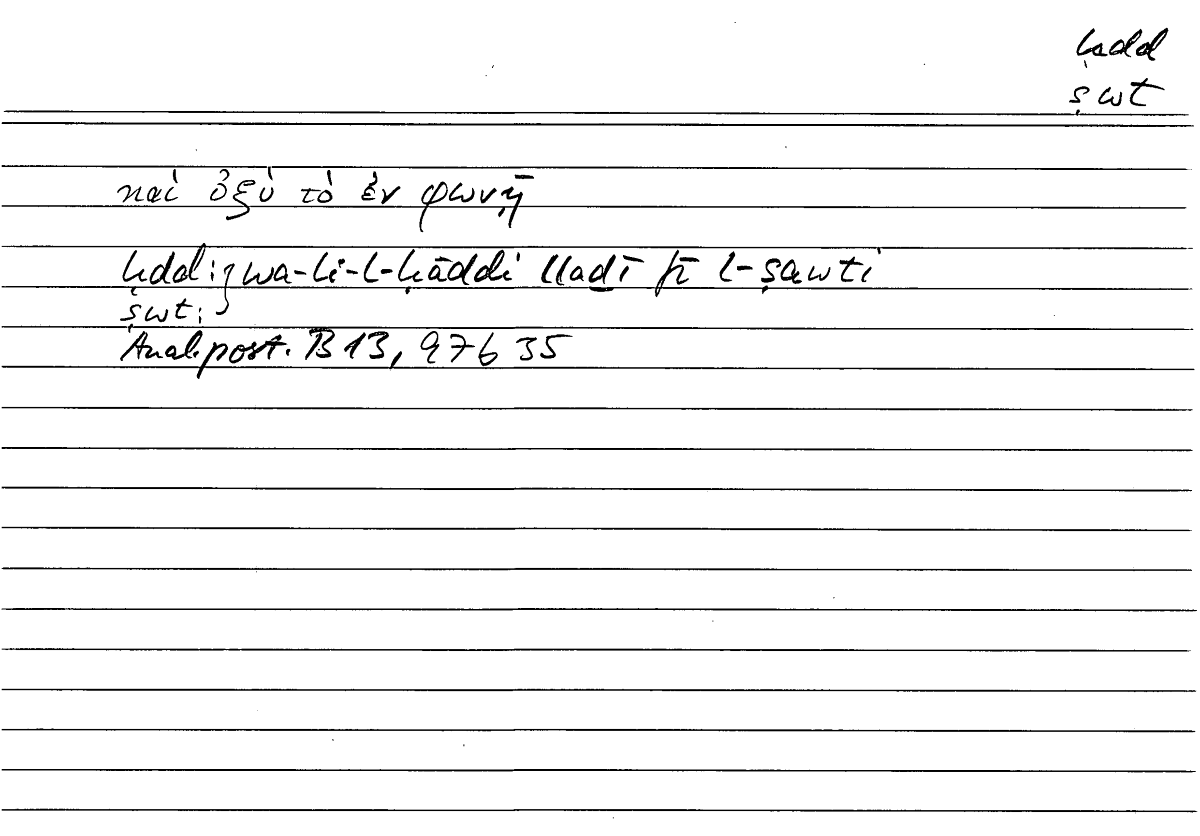 ḥdd
ṣwt
καὶ ὀξὺ τὸ ἐν φωνῇ
ḥdd:} wa-li-l-ḥāddi lladī fī l-ṣawti
ṣwt:
Anal. post. B 13, 97b 35